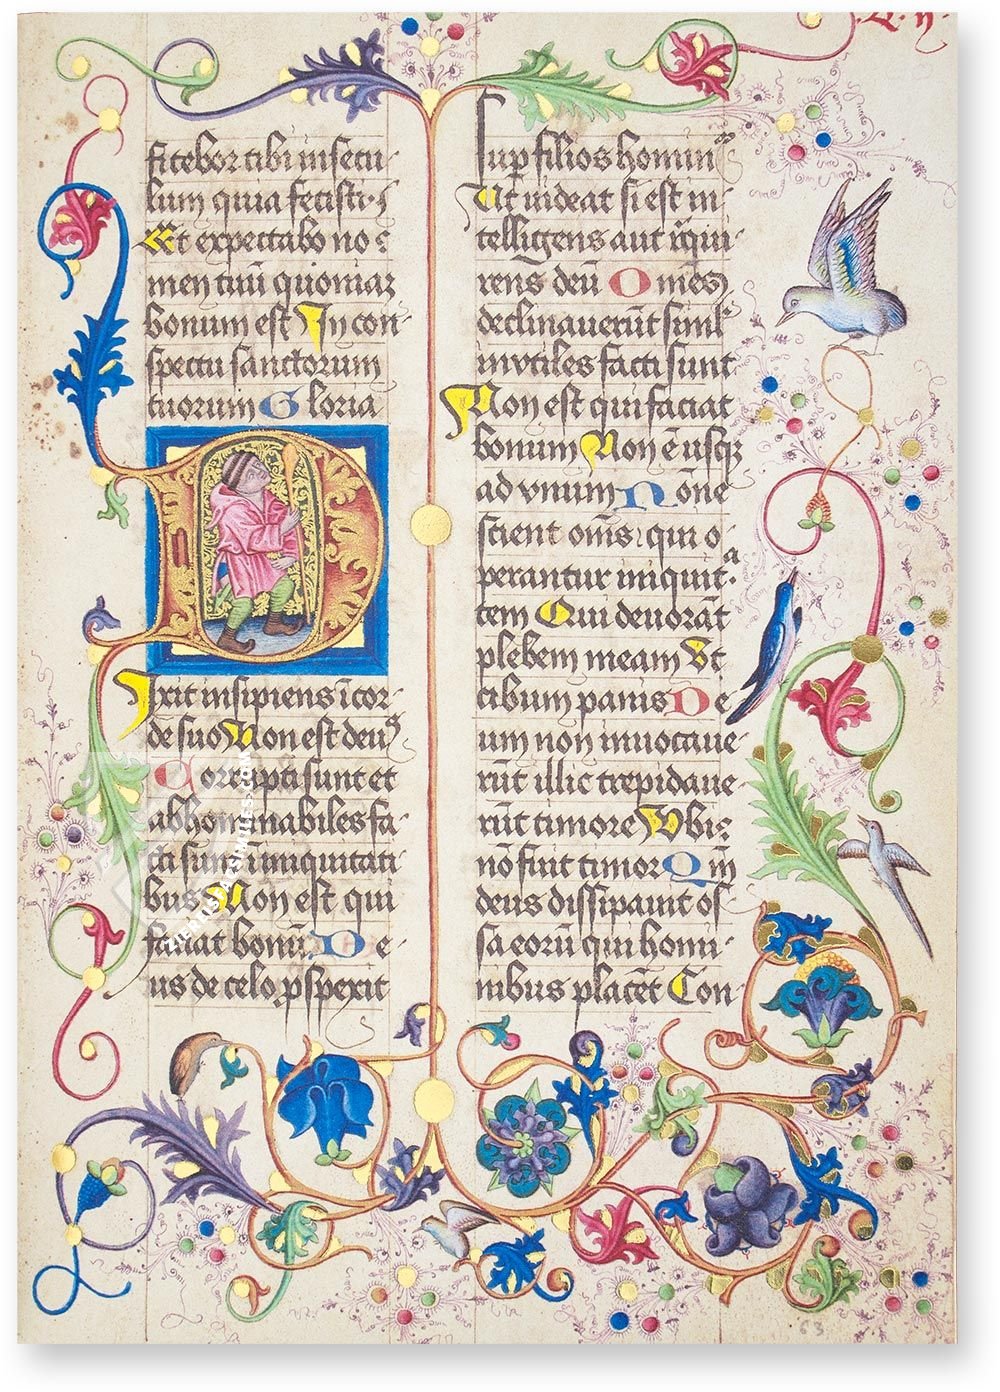 fitebor tibi in secu-
lum quia fecisti·
Et expectabo no
men tuū quoniaz
bonum est In con-
spectu sanctorum
tuorum Gloria
Dixit insipiens ī cor-
de suo Non est deus
Corrupti sunt et
abhominabiles fa-
cti sunt ī iniquitati
bus Non est qui
faciat bonū De-
us de celo ꝓspexit
sup filios hominū
Ut uideat si est in-
telligens aut reqͥi-
rens deū Omēs
declinauerūt simľ
invtiles facti sunt
Non est qui faciat
bonum Non ē usqꝫ
ad vnum Nōne
scient om̄s qui o-
perantur iniquita-
tem Qui deuorāt
plebem meam Vt
cibum panis De
um non inuocaue-
rūt illic trepidaue
rūt timore Vbi
nō fuit timor Qm̄
deus dissipauit os-
sa eorū qui homi-
nibus placēt Con-
63